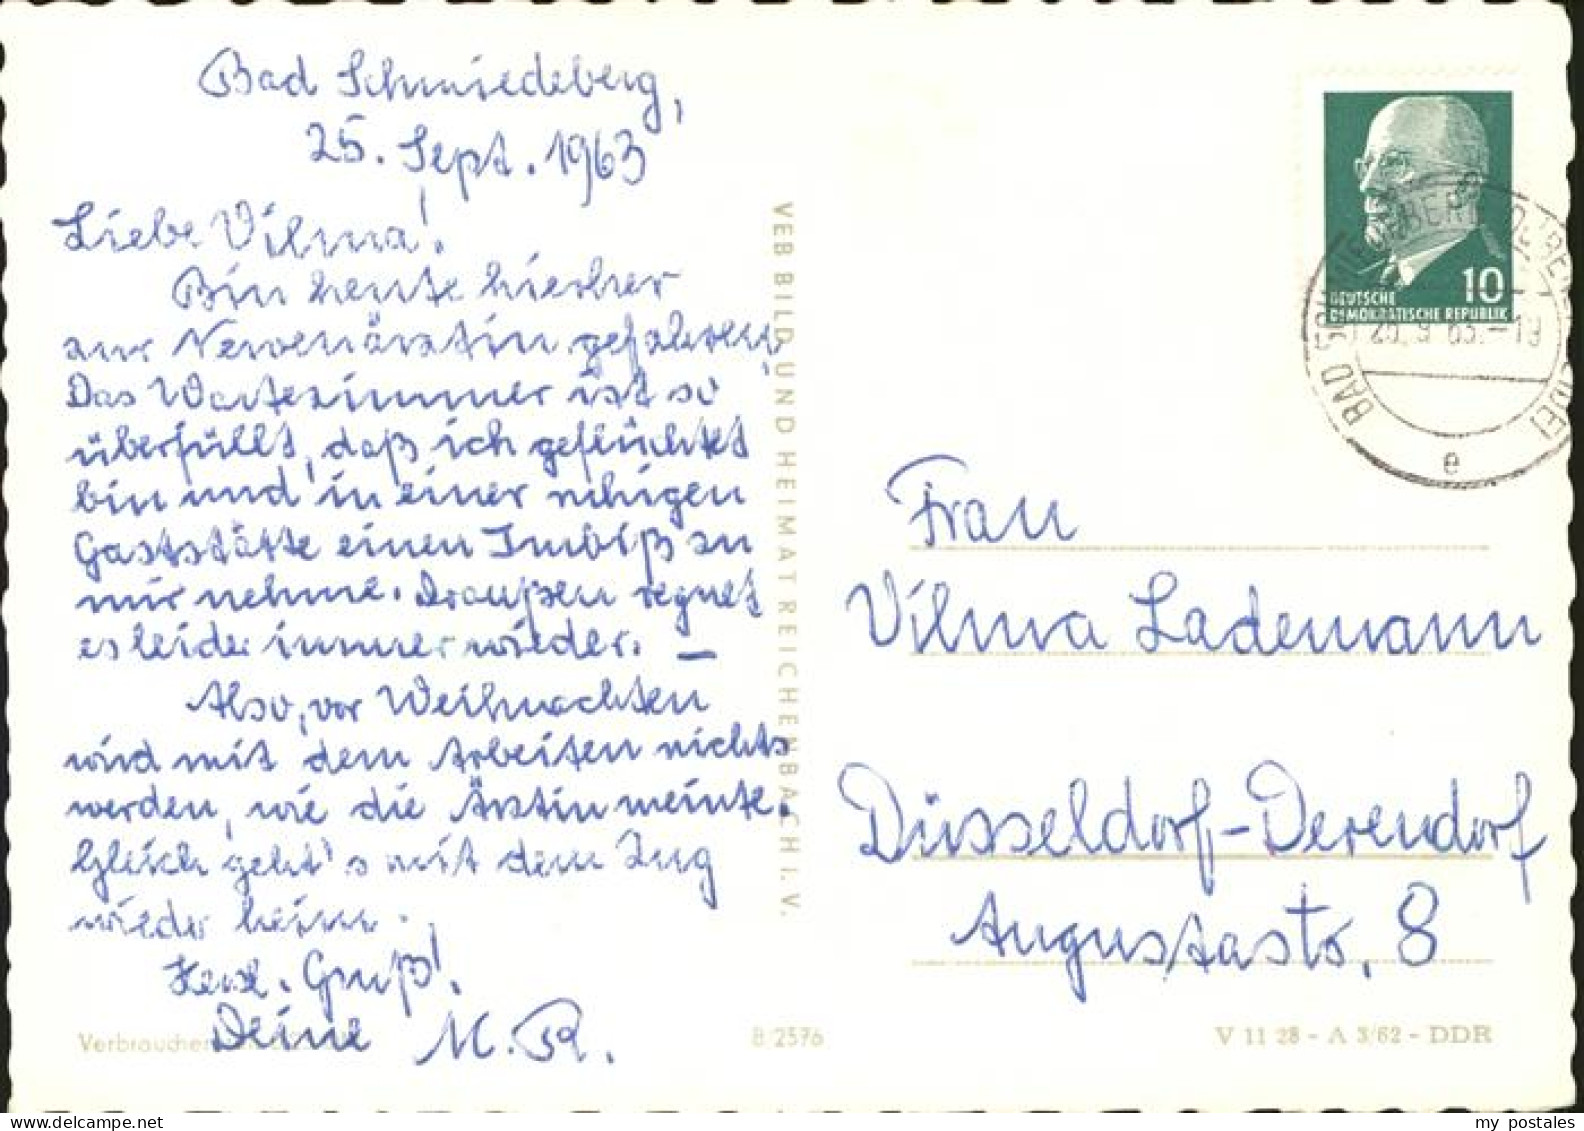 Bad Schmiedeberg,
25. Sept. 1963
Liebe Vilma!
Bin heute hierher
zur Nervenärztin gefahren,
Das Wartezimmer ist so
überfüllt, daß ich geflüchtet
bin und in einer ruhigen
Gaststätte einen Imbiß zu
mir nehme. Draußen regnet
es leider immer wieder. —
Also, vor Weihnachten
wird mit dem Arbeiten nichts
werden, wie die Ärztin meinte.
Gleich geht's mit dem Zug
wieder heim.
Herzl. Gruß!
Deine M. R.
Verbraucher
B 2576
VEB BILD UND HEIMAT REICHENBACH I. V.
DEUTSCHE
DEMOKRATISCHE REPUBLIK
10
BAD SCHMIEDEBERG
25. 9 63. - 19
e
Frau
Vilma Lademann
Düsseldorf-Derendorf
Augustastr. 8
V 11 28 - A 3/62 - DDR
my postales